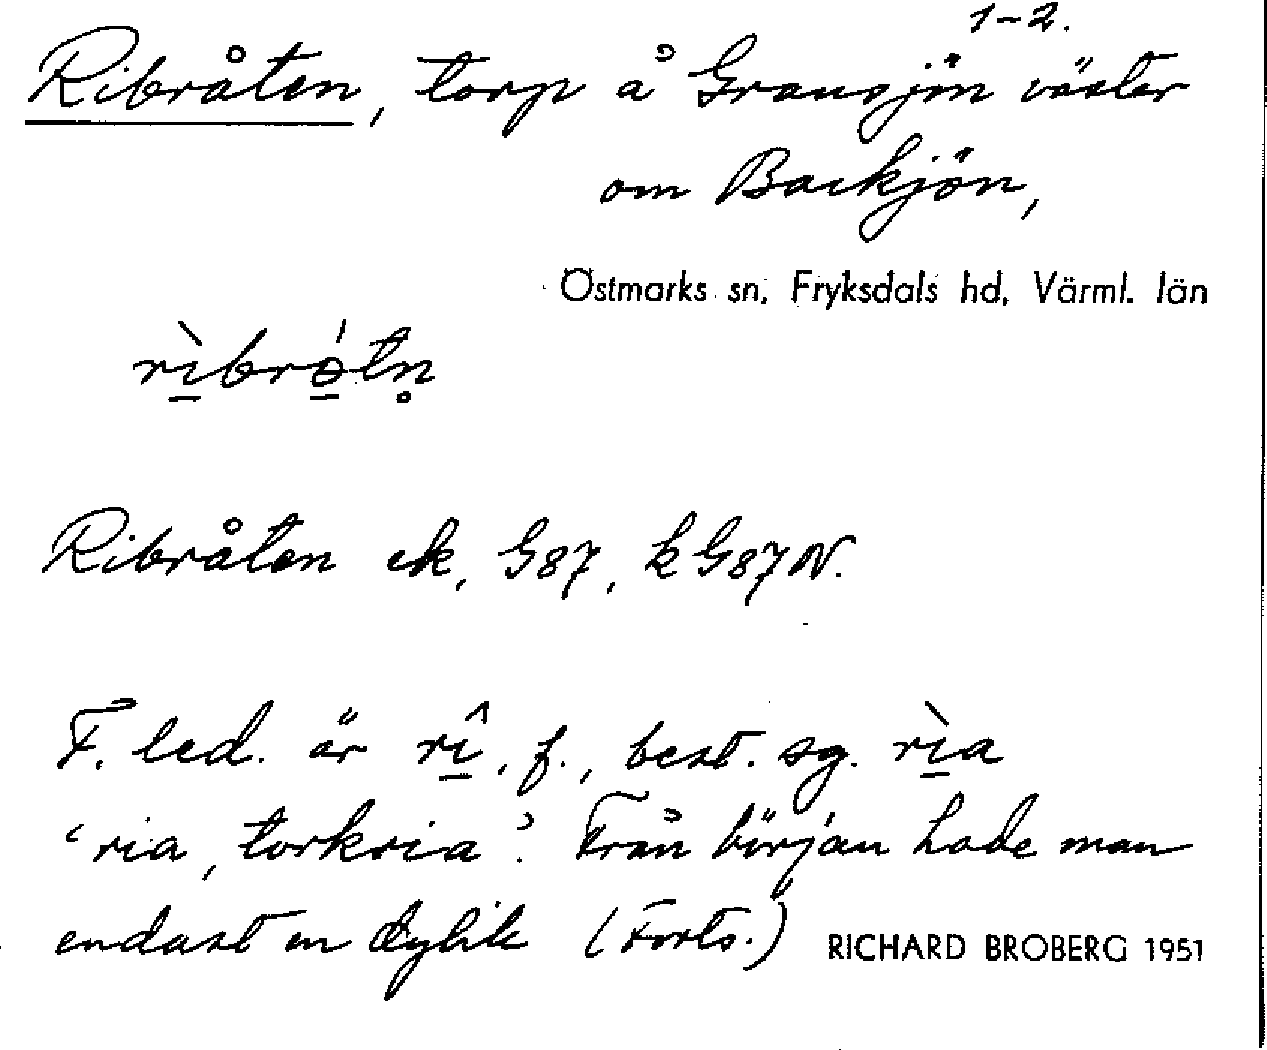 1-2.
Ribråten, torp å Gransjön väster
om Backjön,
Östmarks sn, Fryksdals hd, Värml. län
rìbrǿtn̥
Ribråten ek, G87, k G87 N.
F. led. är rî, f., best. sg. rìa
'ria, torkria'. Från början hade man
endast en dylik (Forts.) RICHARD BROBERG 1951